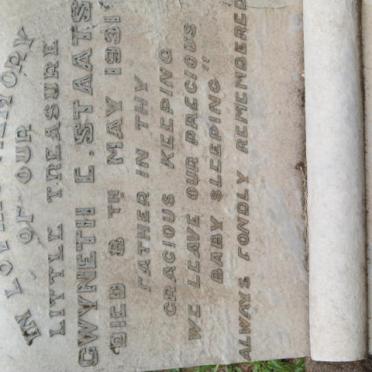 IN LOVING MEMORY
OF OUR
LITTLE TREASURE
GWYNETH E. STAATS
DIED 8TH MAY 1931
FATHER IN THY
GRACIOUS KEEPING
WE LEAVE OUR PRECIOUS
BABY SLEEPING"
ALWAYS FONDLY REMEMBERED